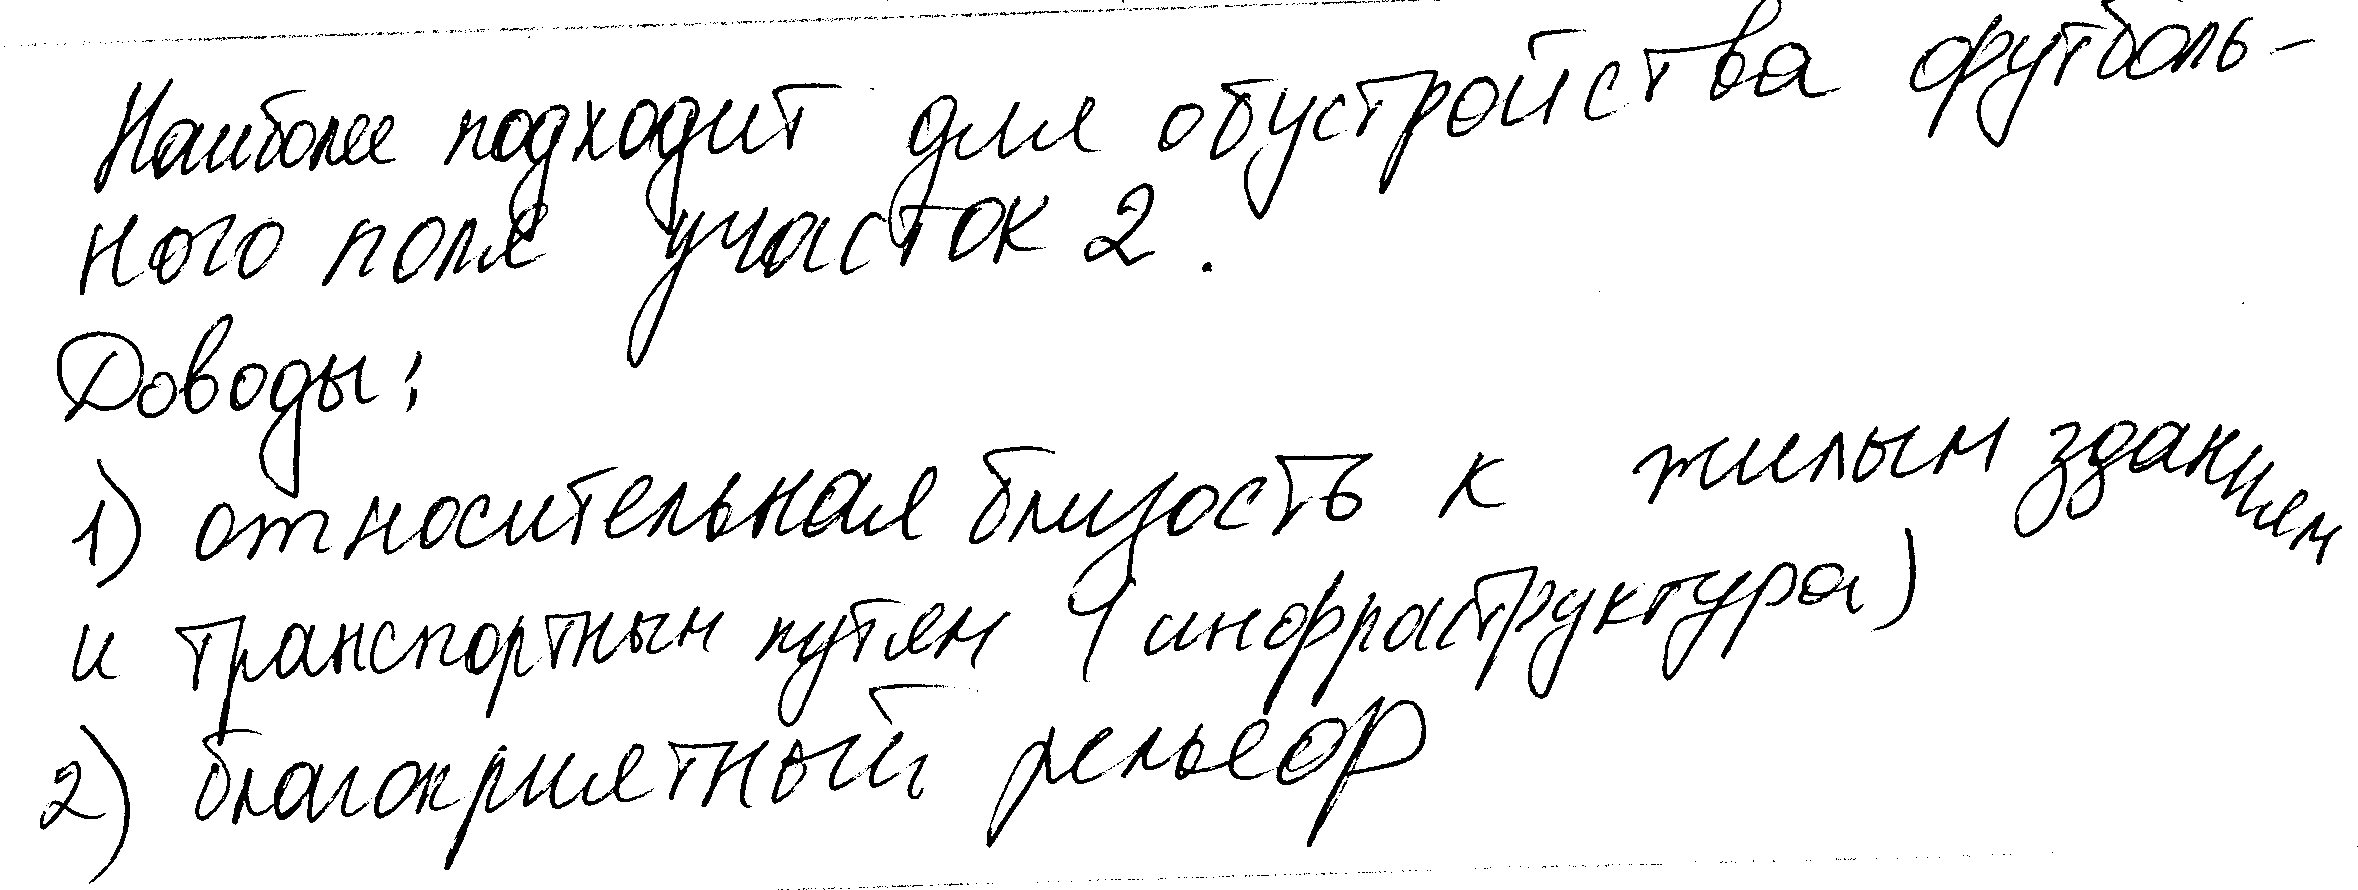 Наиболее подходит для обустройства футболь-
ного поля участок 2.
Доводы:
1) относительная близость к жилым зданиям
и транспортным путям (инфраструктура)
2) благоприятный рельеф